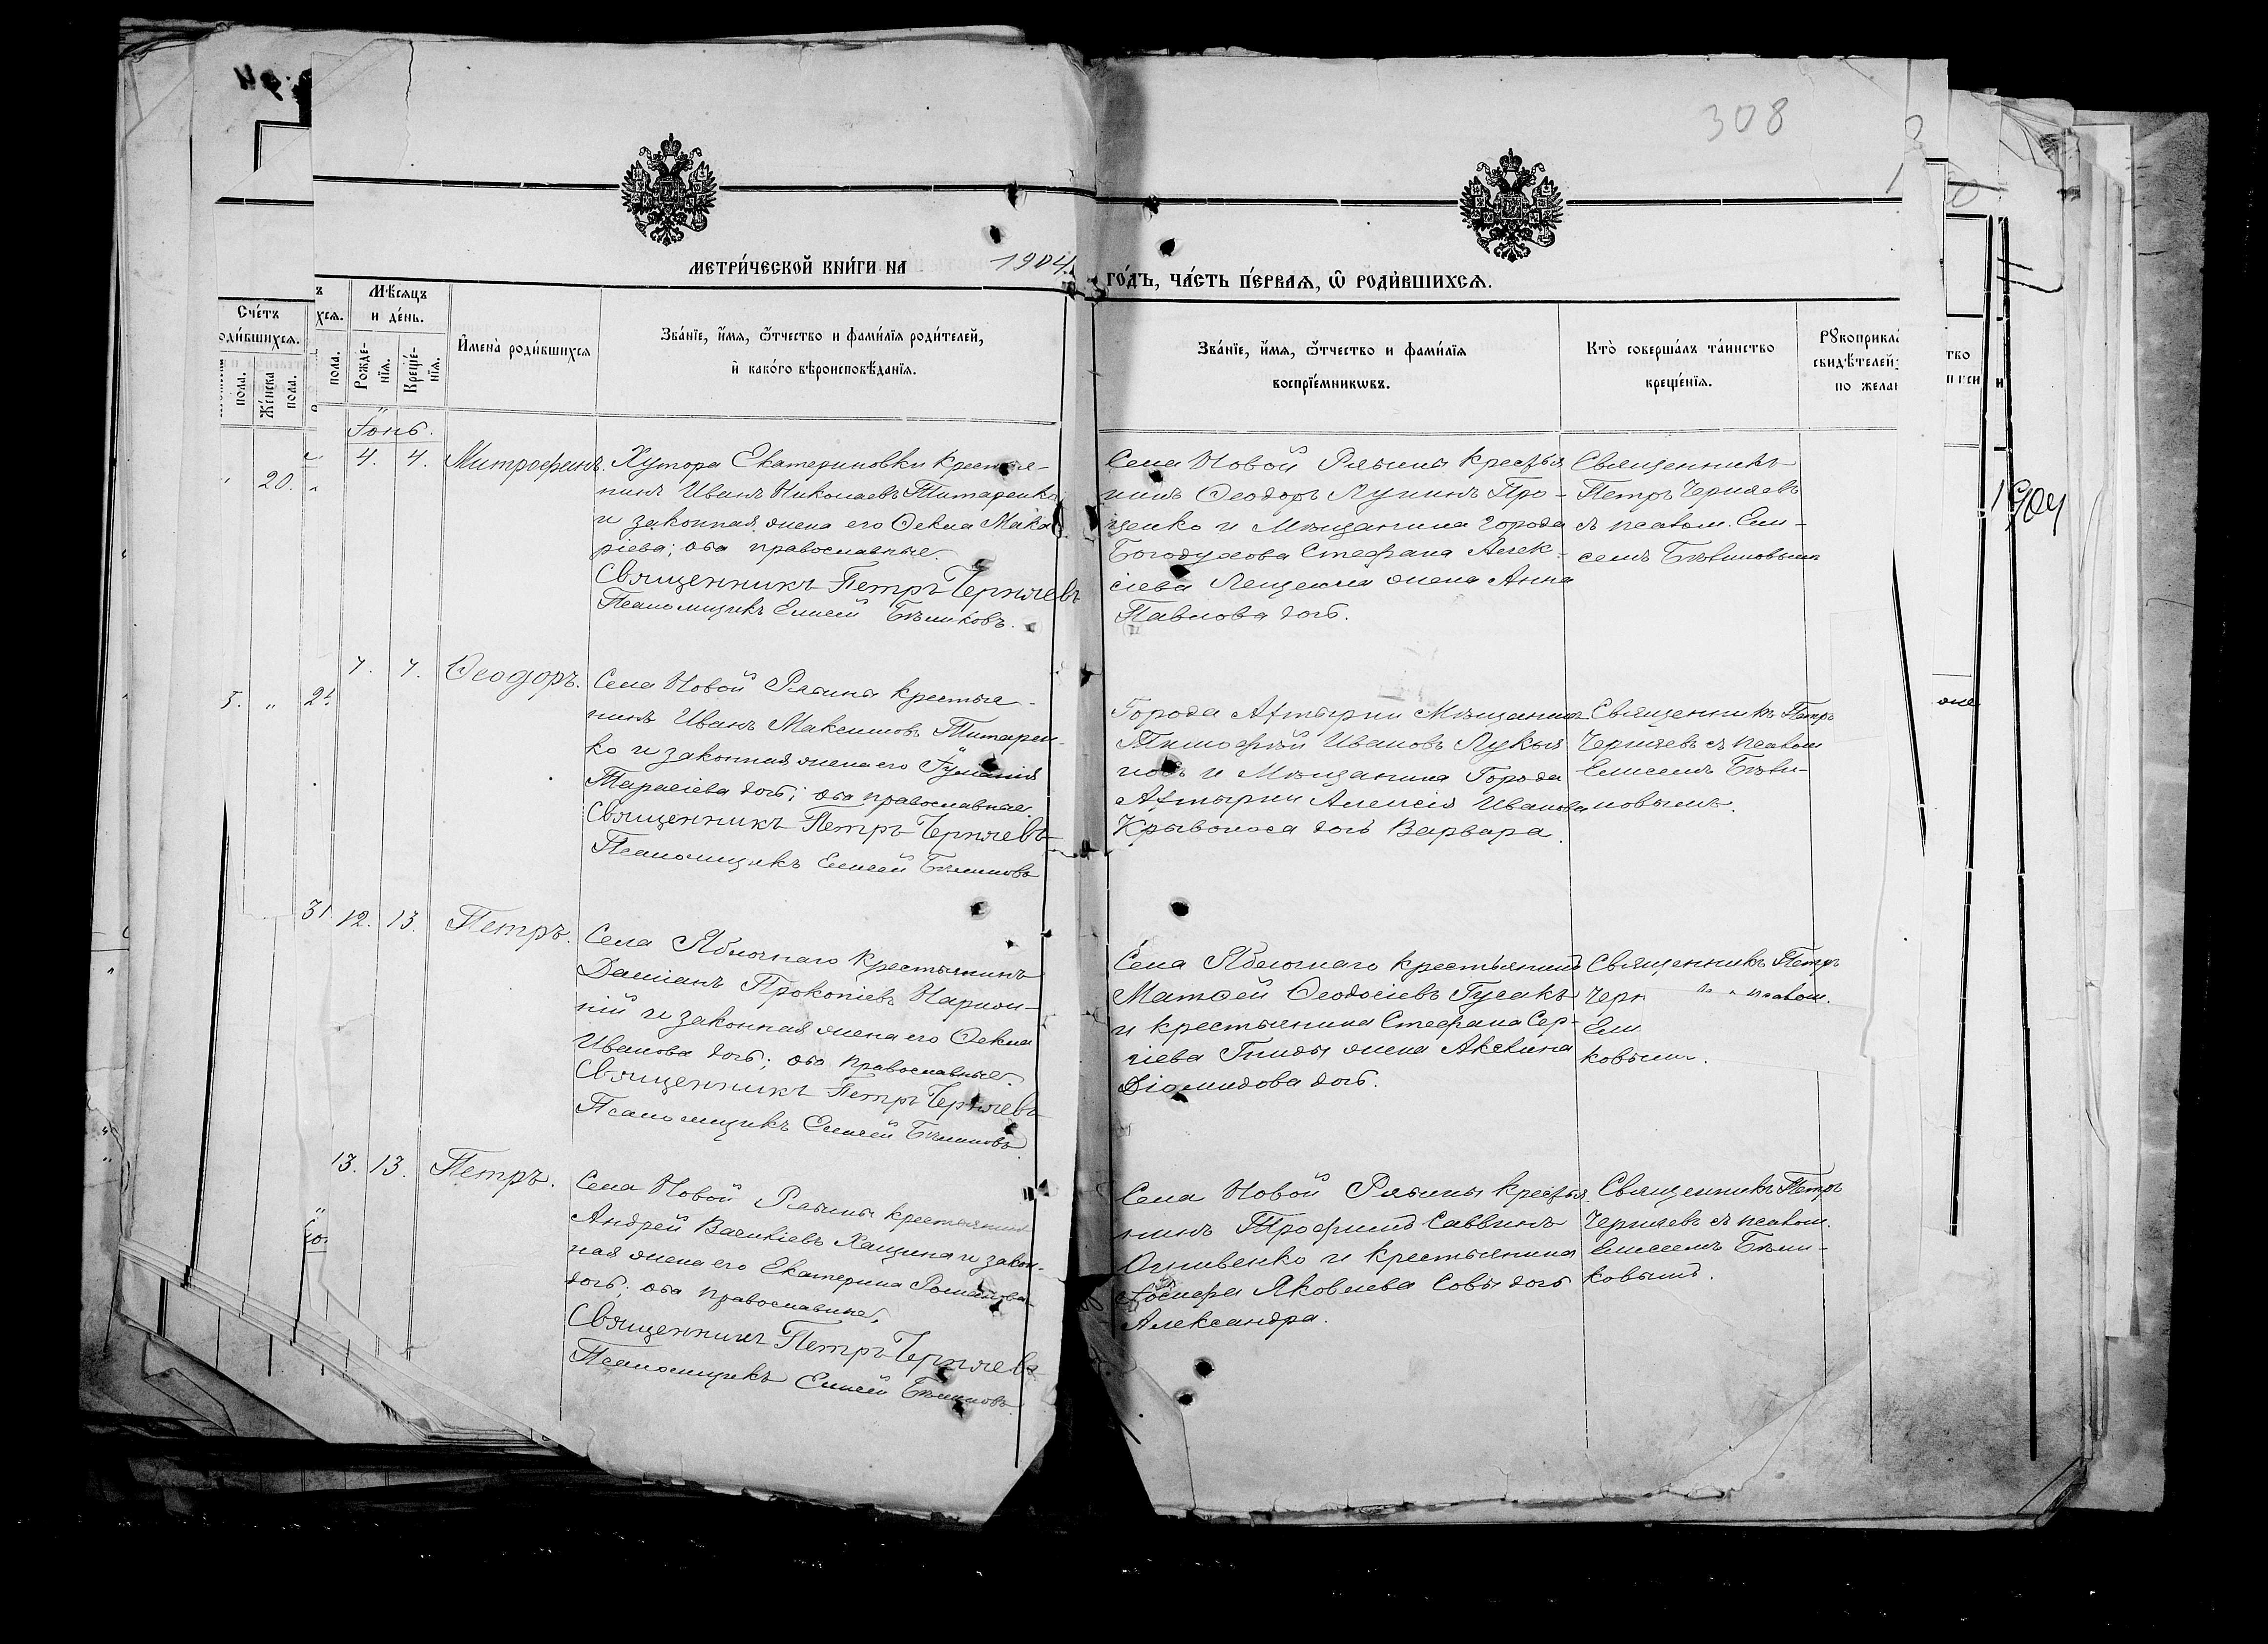 308
МЕТРИ́ЧЕСКОЙ КНИ́ГИ НА 1904
ГО́ДЪ, ЧА́СТЬ ПЕ́РВАЯ, Ѿ РОДИ́ВШИХСЯ.
Сче́тъ
роди́вшихся.
Же́нска
пола.
Мѣсяцъ
и де́нь.
Рожде-
нїя.
Креще́-
нїя.
И҆мена̀ роди́вшихся
Зва́нїе, и҆́мя, ѻ҆́тчество и фами́лїя роди́телей,
и҆ како́го вѣроисповѣ́данїя.
Зва́нїе, и҆́мя, ѻ҆́тчество и фами́лїя
воспрїе́мникѡвъ.
Кто̀ соверша́лъ та́инство
креще́нїя.
по жела
20.
Іюнь.
4. 4. Митрофанъ.
Хутора Екатериновки крестья-
нинъ Иванъ Николаевъ Титаренко
и законная жена его Ѳекла Мака
ріева; оба православные.
Священникъ Петръ Черняевъ
Псаломщикъ Елисей Бѣликовъ.
Села Новой Рябины крестья
нинъ Ѳеодоръ Лукинъ Про-
ценко и Мѣщанина города
Богодухова Стефана Алек-
сіева Лещенка жена Анна
Павлова дочь.
Священникъ
Петръ Черняевъ
съ псалом. Ели-
сеемъ Бѣликовымъ
7. 7. Ѳеодоръ.
Села Новой Рябины крестья-
нинъ Иванъ Максимовъ Титарен-
ко и законная жена его Іуліанія
Тарасіева дочь; оба православные.
Священникъ Петръ Черняевъ
Псаломщикъ Елисей Бѣликовъ
Города Ахтырки Мѣщанинъ
Тимофей Ивановъ Лукья
новъ и Мѣщанина Города
Ахтырки Алексія Иванова
Кривоноса дочь Варвара.
Священникъ Петръ
Черняевъ съ псалом
Елисеемъ Бѣли-
ковымъ.
31 12. 13. Петръ.
Села Яблочнаго крестьянинъ
Даміанъ Прокопіевъ
и законная жена его Ѳекла
Иванова дочь; оба православные.
Священникъ Петръ Черняевъ
Псаломщикъ Елисей Бѣликовъ
Села Яблочнаго крестьянинъ
Матѳей Ѳеодосіевъ Гусакъ
и крестьянина Стефана Сер-
гіева Гниды жена Акилина
Діомидова дочь.
Священникъ Петръ
Черн псалом.
Ели
ковымъ.
13. 13. Петръ.
Села Новой Рябины крестьянинъ
Андрей Василіевъ Хащина и закон-
ная жена его Екатерина Романова
дочь; оба православные.
Священникъ Петръ Черняевъ
Псаломщикъ Елисей Бѣликовъ
Села Новой Рябины крестья
нинъ Трофимъ Саввинъ
и крестьянина
Іосифа Яковлева Совы дочь
Александра.
Священникъ Петръ
Черняевъ съ псалом.
Елисеемъ Бѣли-
ковымъ.
1904